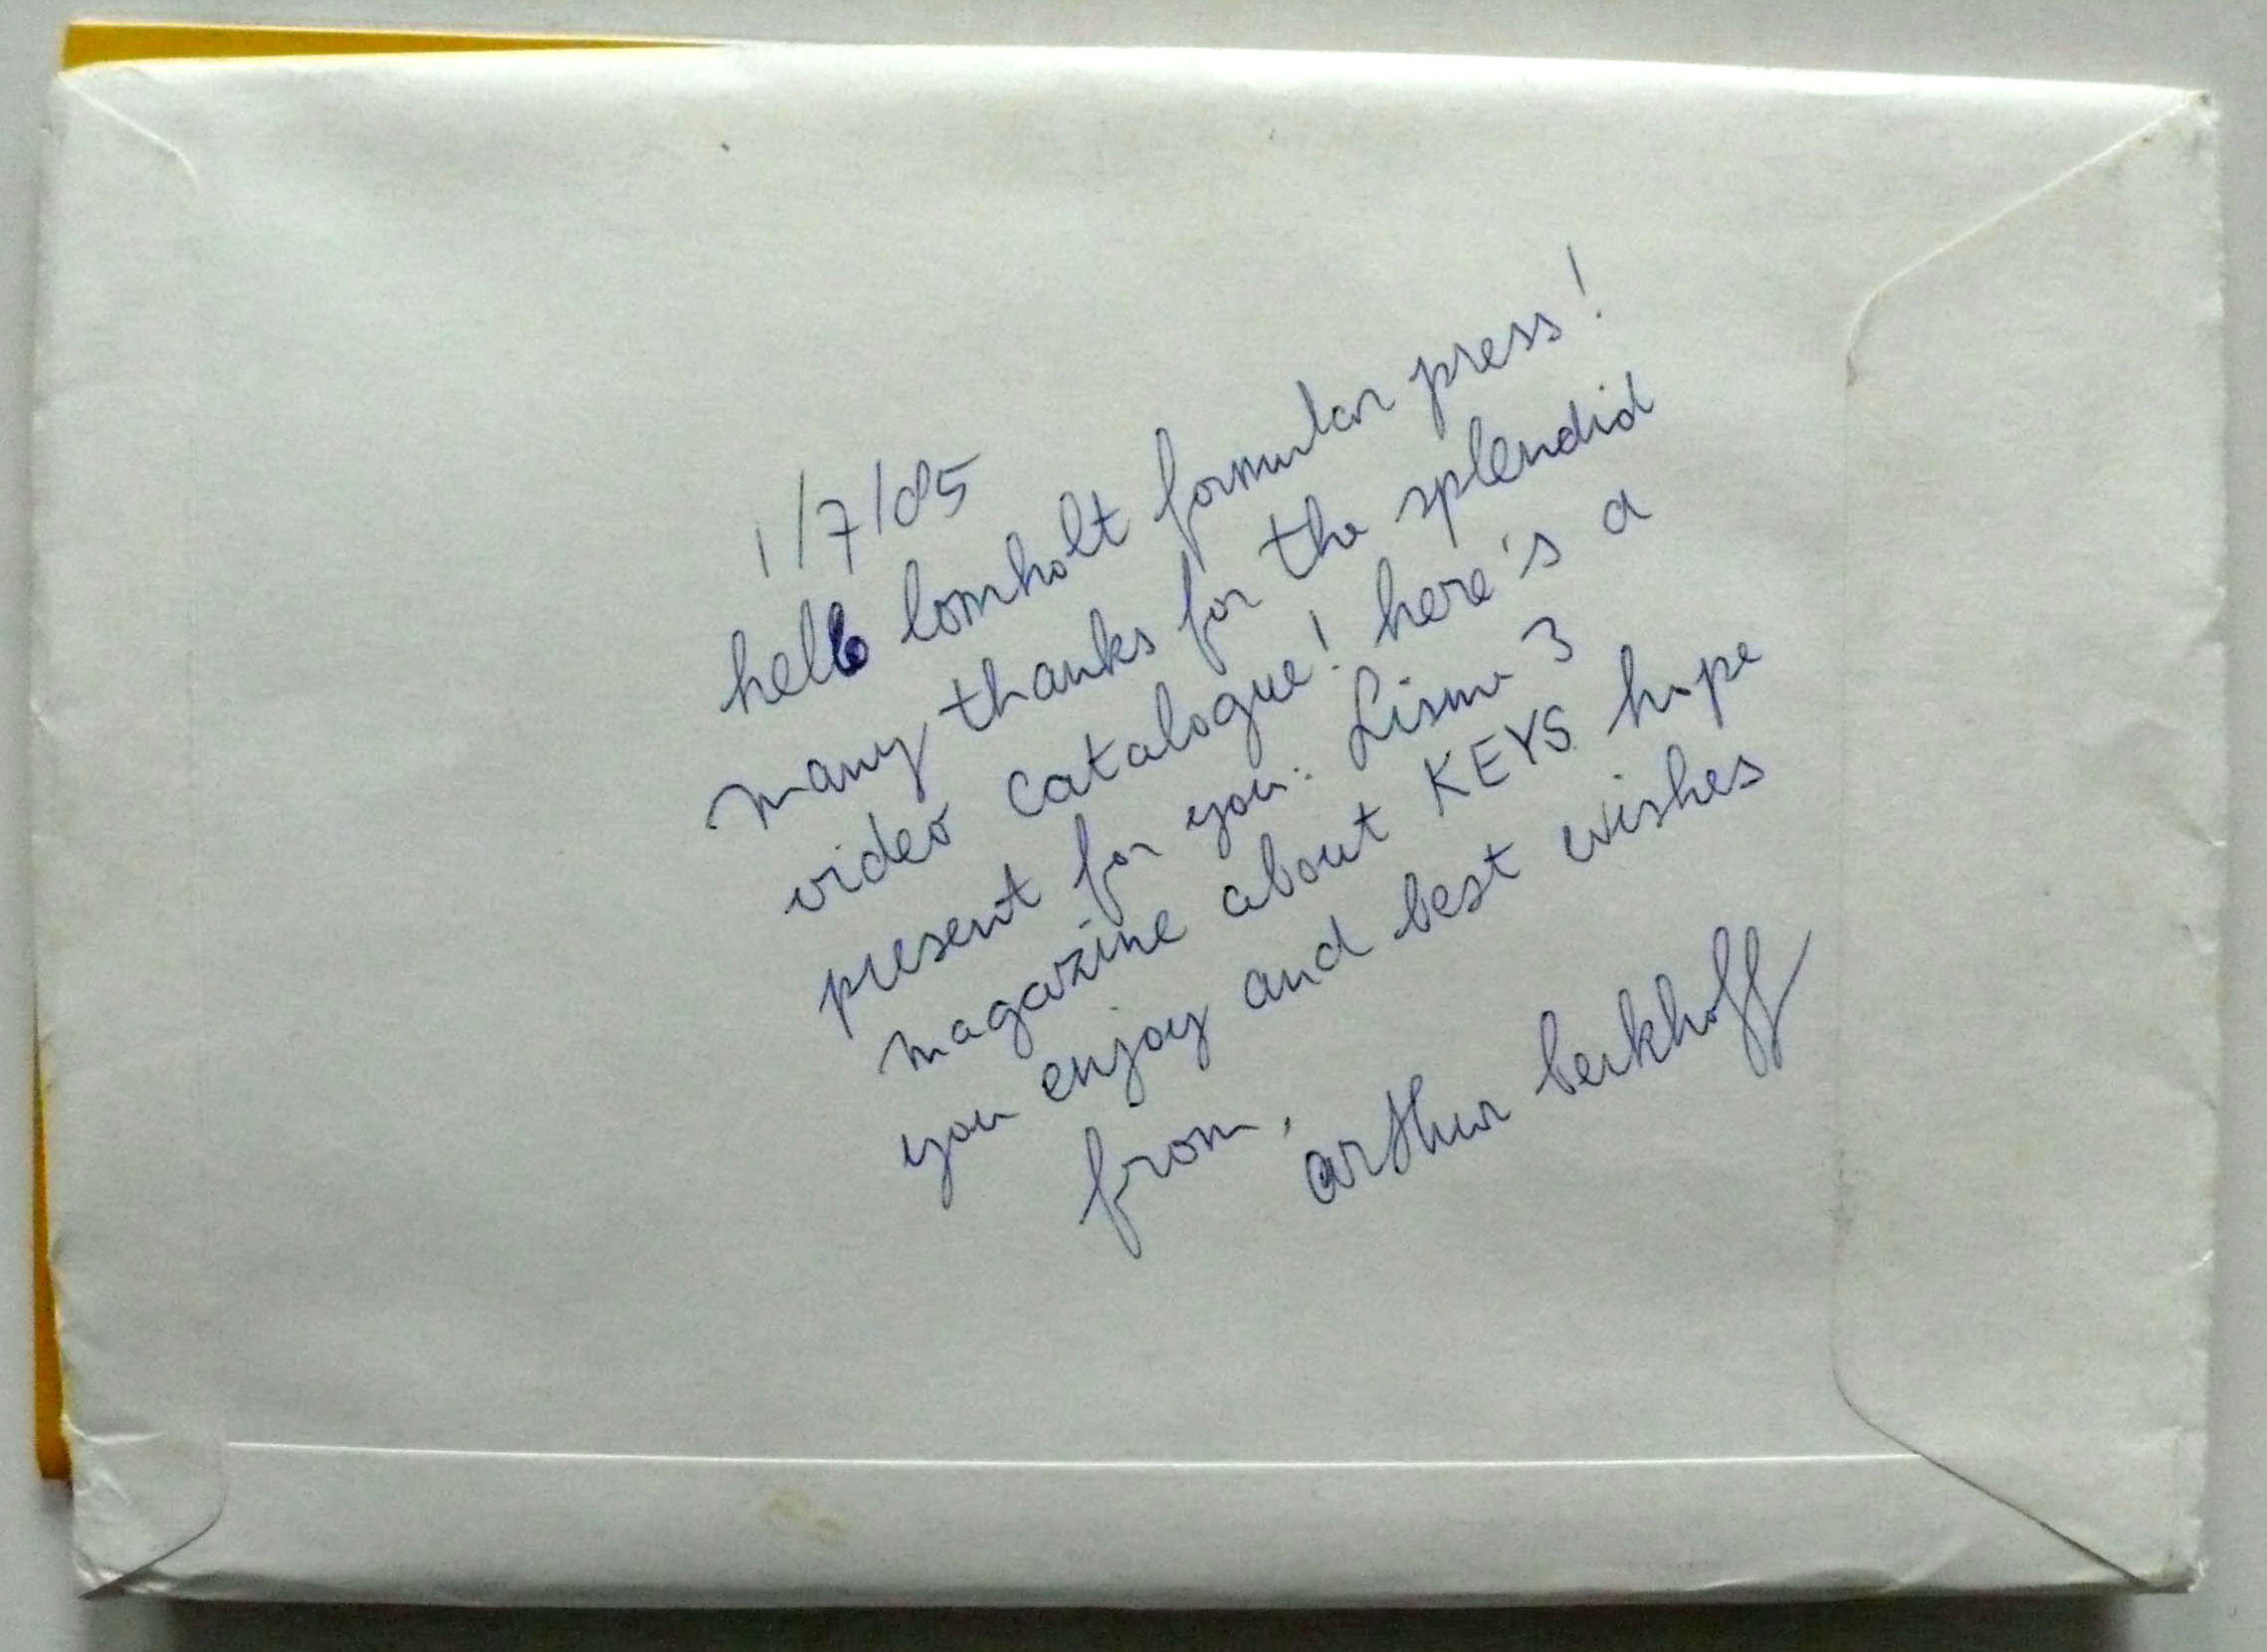 1/7/85
hello lomholt formular press!
many thanks for the splendid
video catalogue! here's a
present for you: Lismu 3
magazine about KEYS hope
you enjoy and best wishes
from,
arthur berkhoff